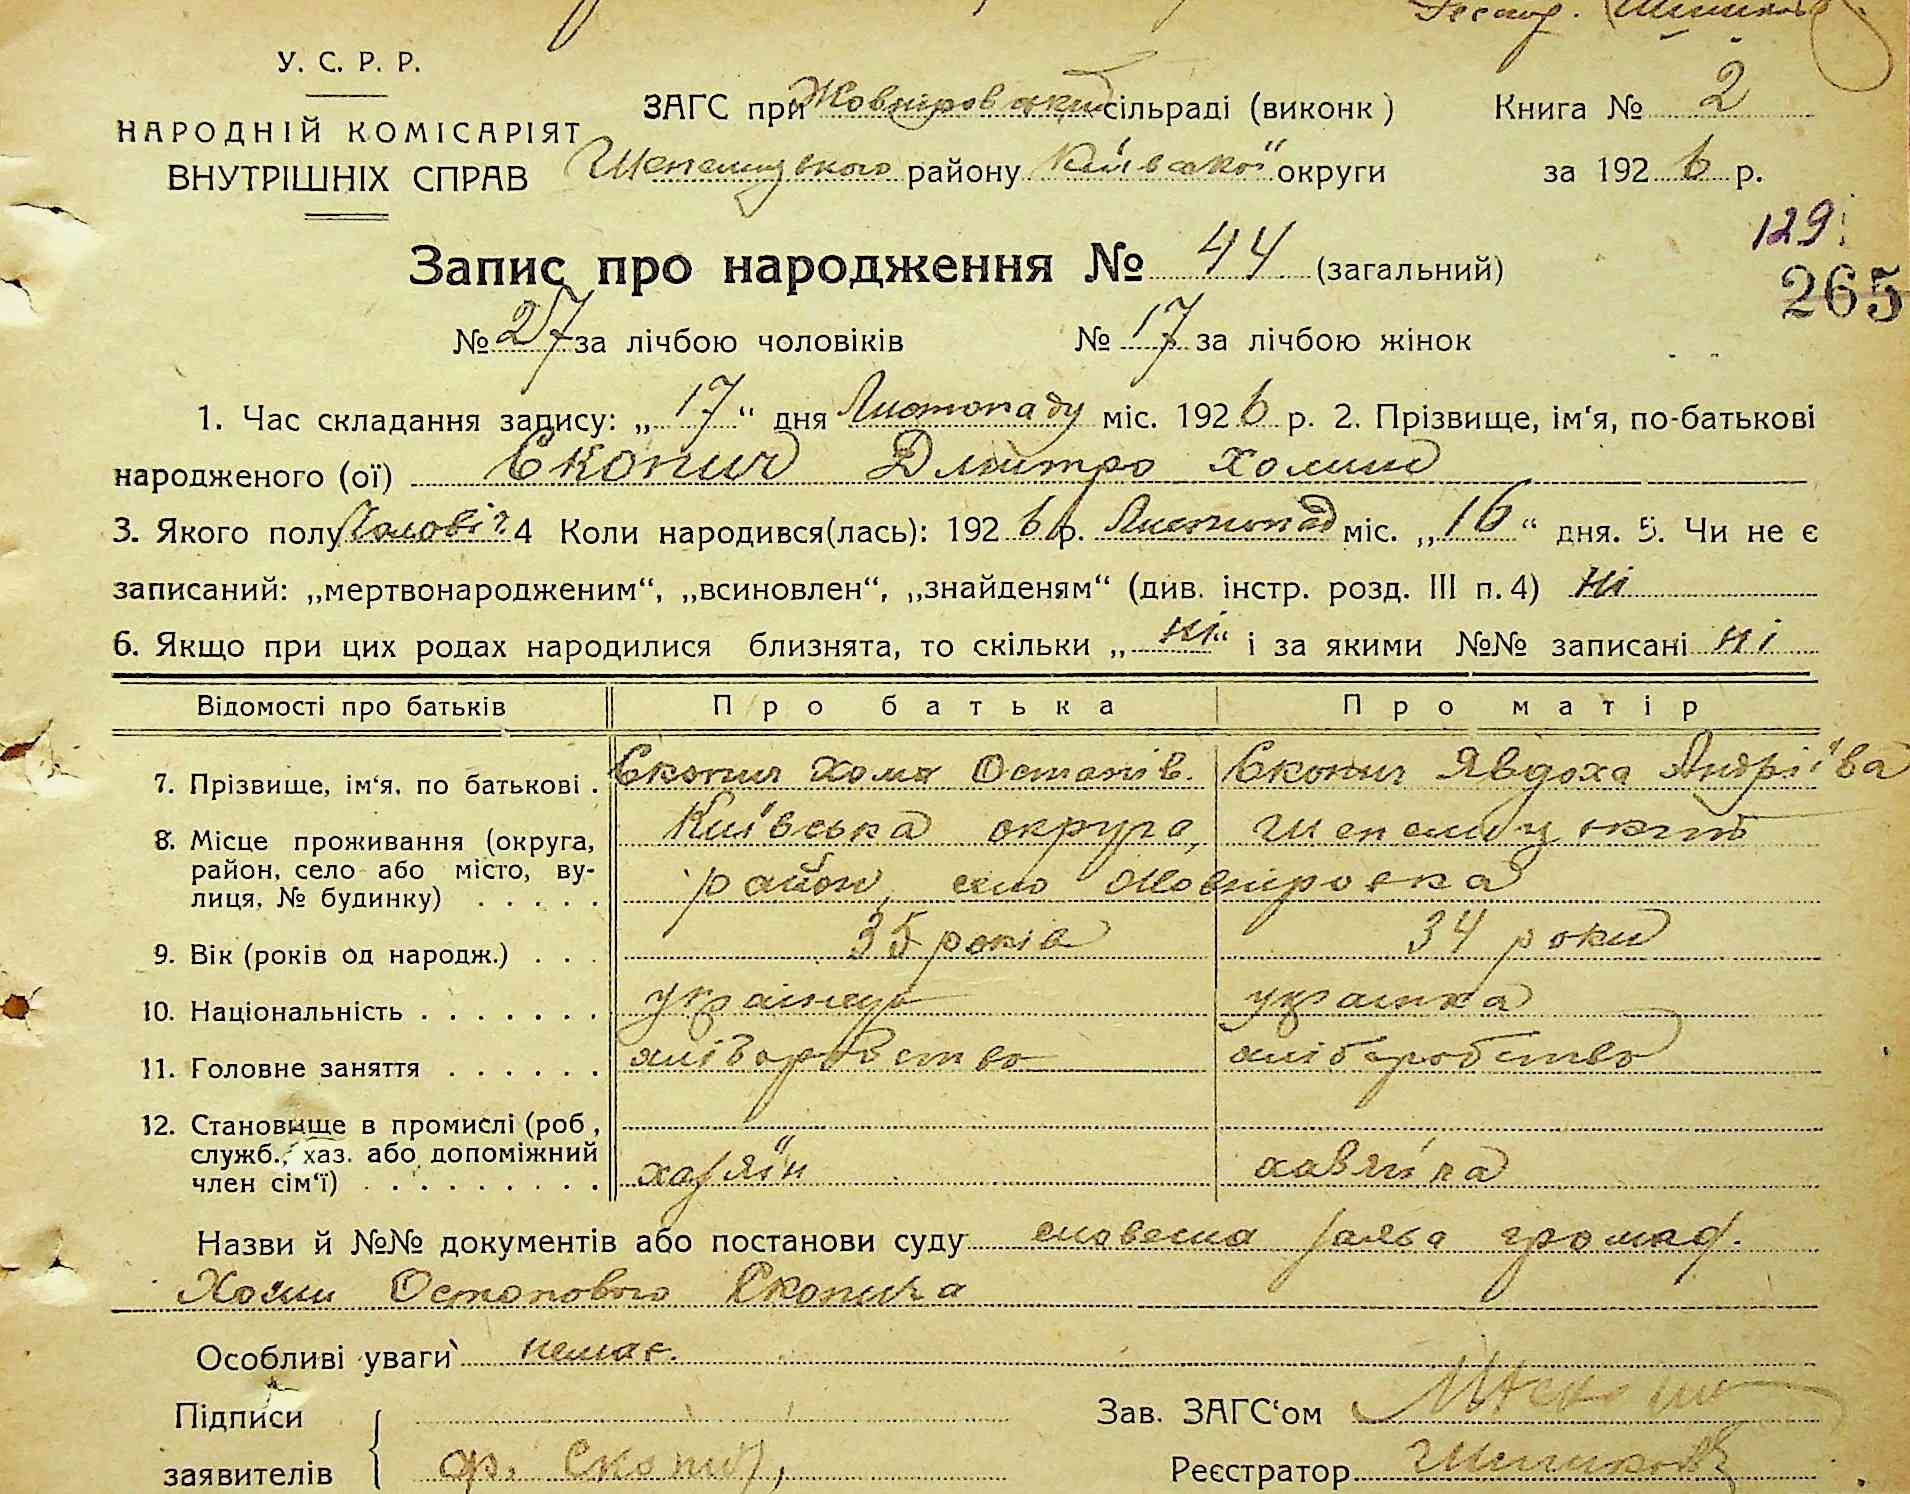 Реєстр.
У. С. Р. Р.
НАРОДНІЙ КОМІСАРІЯТ
ВНУТРІШНІХ СПРАВ
ЗАГС при Жовнировський сільраді (виконк )
Шепелицького району Київської округи
Книга № 2
за 1926 р.
129
265
Запис про народження № 44 (загальний)
№ 27 за лічбою чоловіків № 17 за лічбою жінок
1. Час складання запису: „ 17 “ дня Листопаду міс. 1926 р. 2. Прізвище, ім‘я, по-батькові
народженого (ої) Скопич Дмитро Хомин
3. Якого полу Чоловіч 4 Коли народився(лась): 1926 р. Листопад міс. „16“ дня. 5. Чи не є
записаний: „мертвонародженим“, „всиновлен“, „знайденям“ (див. інстр. розд. III п. 4) Ні
6. Якщо при цих родах народилися близнята, то скільки „ ні “ і за якими №№ записані ні
Відомості про батьків Про батька Про матір
7. Прізвище, ім‘я, по батькові . Скопич Хома Остапів. Скопич Явдоха Андріїва
8. Місце проживання (округа, Київська округа, Шепелицький
район, село або місто, ву- район, село Жовніровка
лиця, № будинку) . . . . .
9. Вік (років од народж.) . . . 35 років 34 роки
10. Національність . . . . . . . українець украінка
11. Головне заняття . . . . . . хліборобство хліборобство
12. Становище в промислі (роб ,
служб., хаз. або допоміжний
член сім‘ї) . . . . . . . . . хазяїн хазяїка
Назви й №№ документів або постанови суду словесна заява громад.
Хоми Остапового Скопича
Особливі уваги немає.
Підписи
Зав. ЗАГС‘ом
заявителів ф. Скопич,
Реєстратор